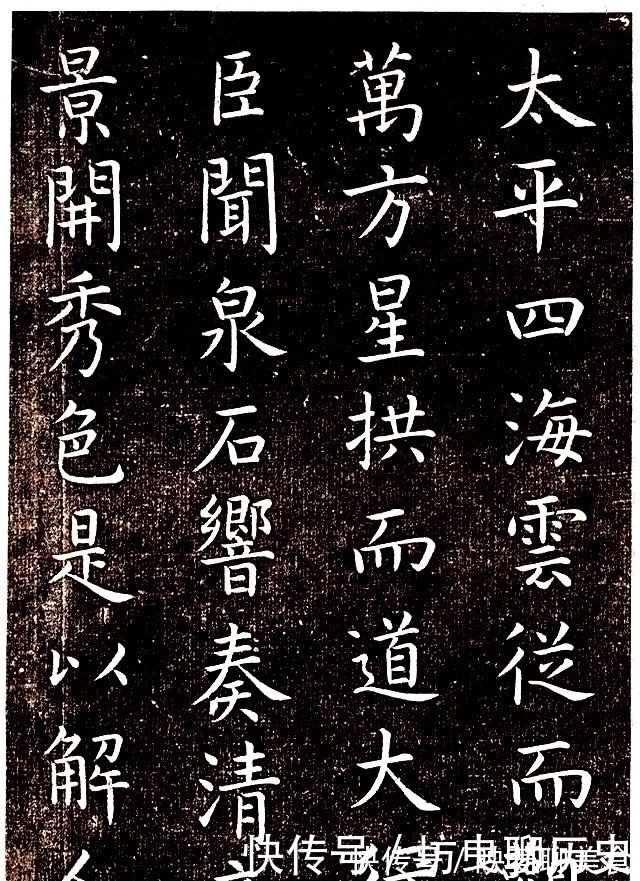 太平四海雲従而
萬方星拱而道大
臣聞泉石響奏清
景開秀色是以解
快传号